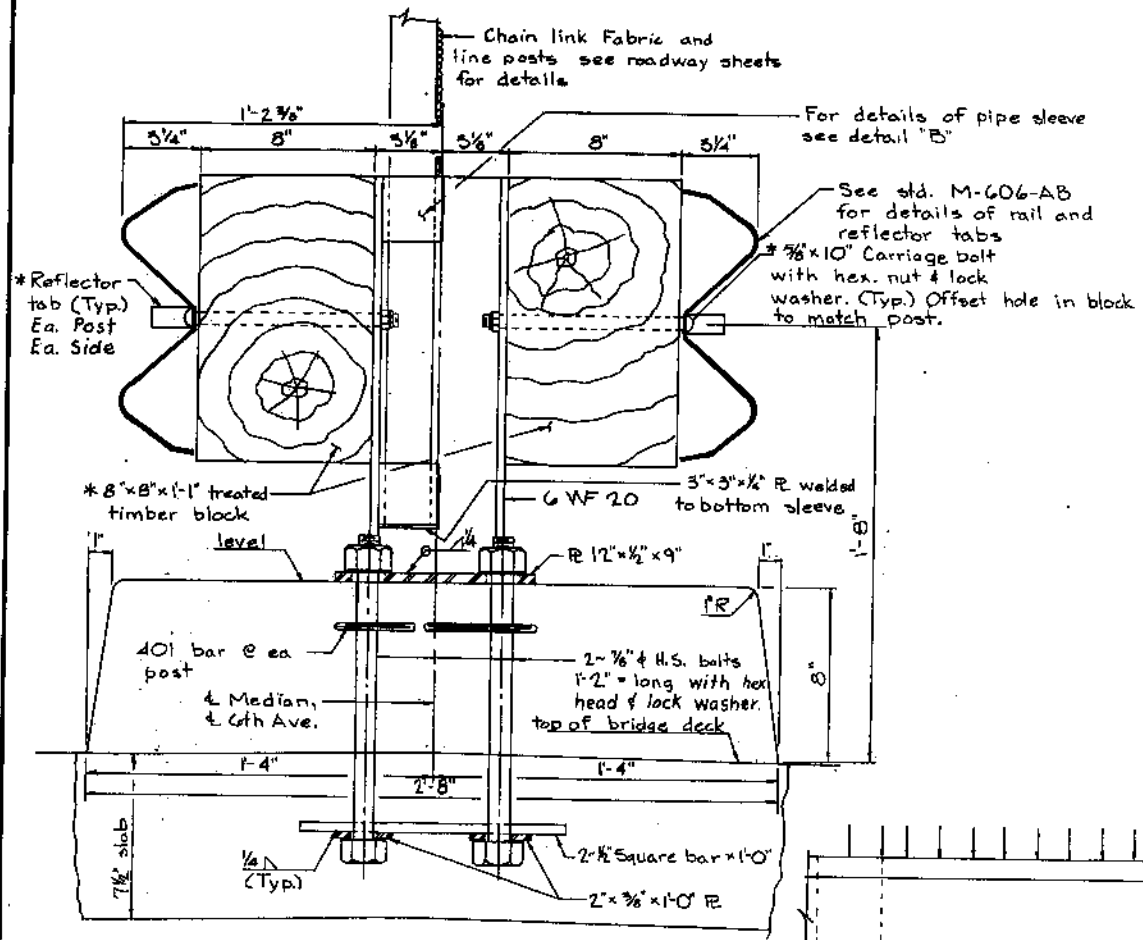 Chain link Fabric and
line posts see roadway sheets
for details
1'-2 3/8"
3 1/4" 8" 3 1/8" 3 1/8" 8" 3 1/4"
For details of pipe sleeve
see detail "B"
See std. M-606-AB
for details of rail and
reflector tabs
* 5/8" x 10" Carriage bolt
with hex. nut & lock
washer. (Typ.) Offset hole in block
to match post.
* Reflector
tab (Typ.)
Ea. Post
Ea. Side
* 8" x 8" x 1'-1" treated
timber block
6 WF 20
3" x 3" x 1/4" PL welded
to bottom sleeve
1'-8"
1"
level
1/4
PL 12" x 1/2" x 9"
1"
1"R
8"
401 bar @ ea
post
2~ 7/8" ϕ H.S. bolts
1'-2" long with hex
head & lock washer.
℄ Median,
℄ 6th Ave.
top of bridge deck
1'-4" 1'-4"
2'-8"
7 1/2" slab
1/4
(Typ.)
2~ 1/2" Square bar x 1'-0"
2" x 3/8" x 1'-0" PL